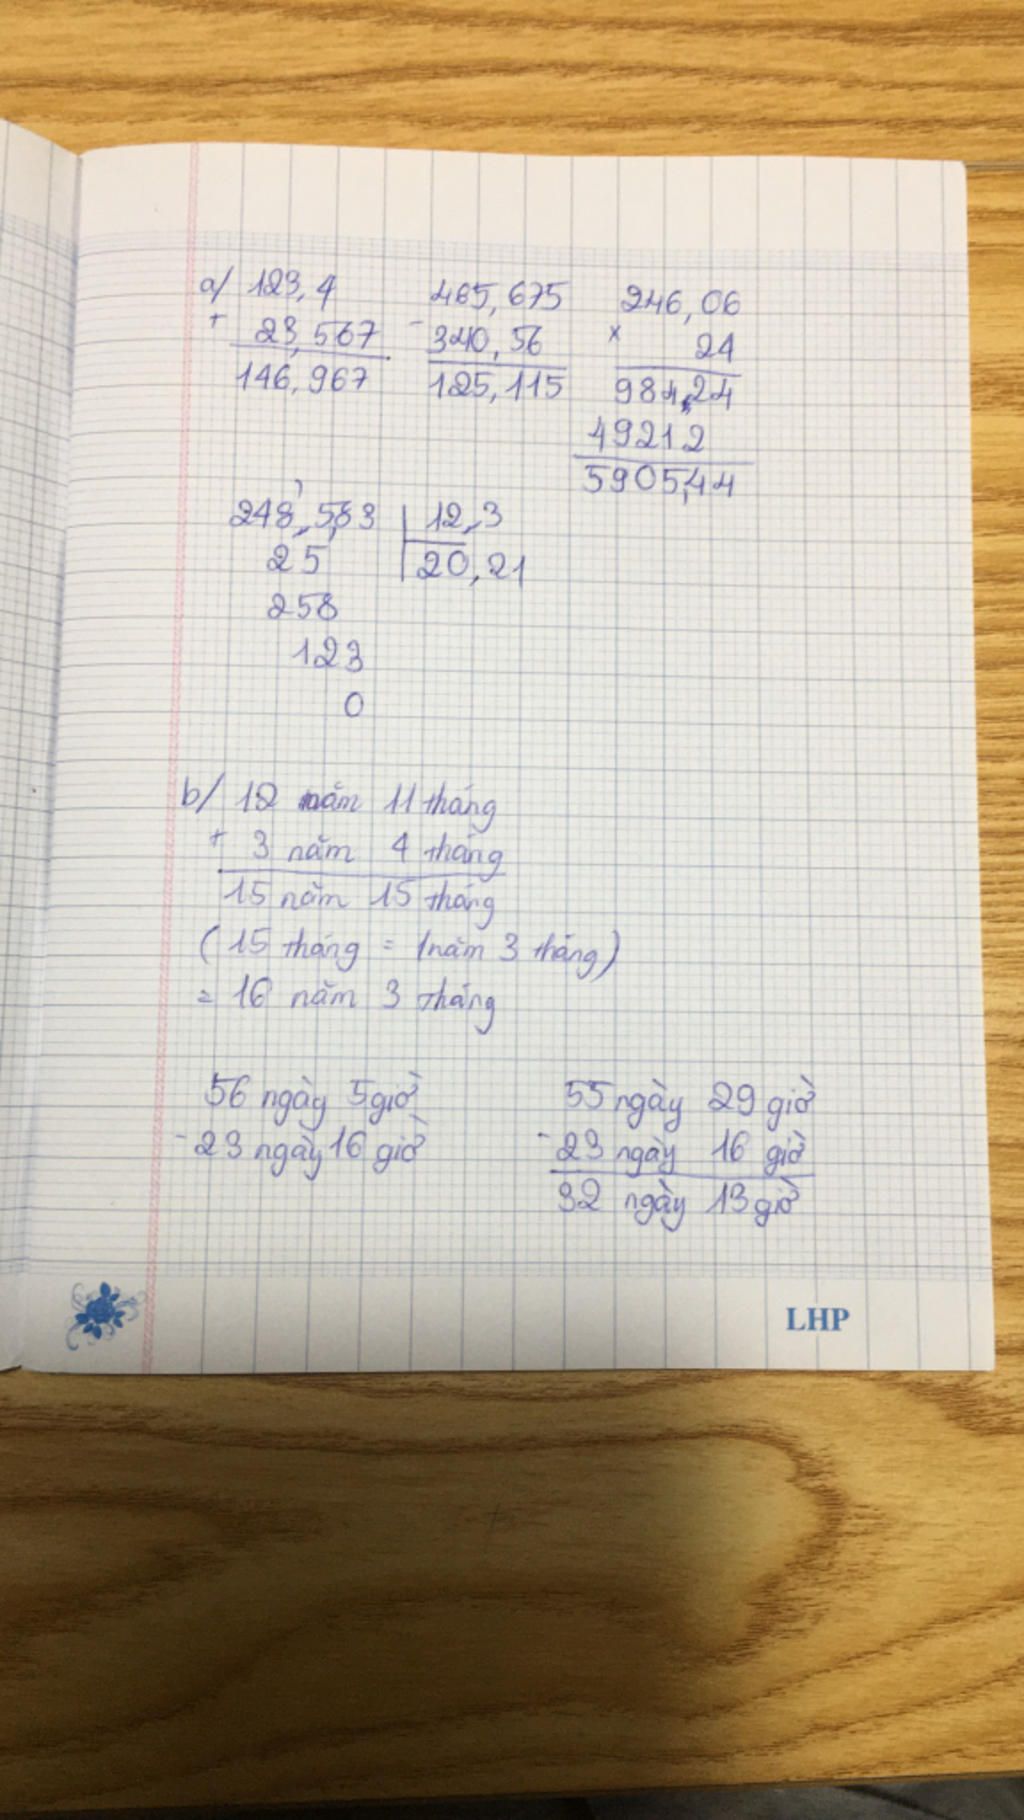 a/ 123,4
+ 23,567
146,967
465,675
- 340,56
125,115
246,06
x 24
984,24
49212
5905,44
248,583 | 12,3
25 | 20,21
258
123
0
b/ 12 năm 11 tháng
+ 3 năm 4 tháng
15 năm 15 tháng
( 15 tháng = 1 năm 3 tháng )
= 16 năm 3 tháng
56 ngày 5 giờ
- 23 ngày 16 giờ
55 ngày 29 giờ
- 23 ngày 16 giờ
32 ngày 13 giờ
LHP